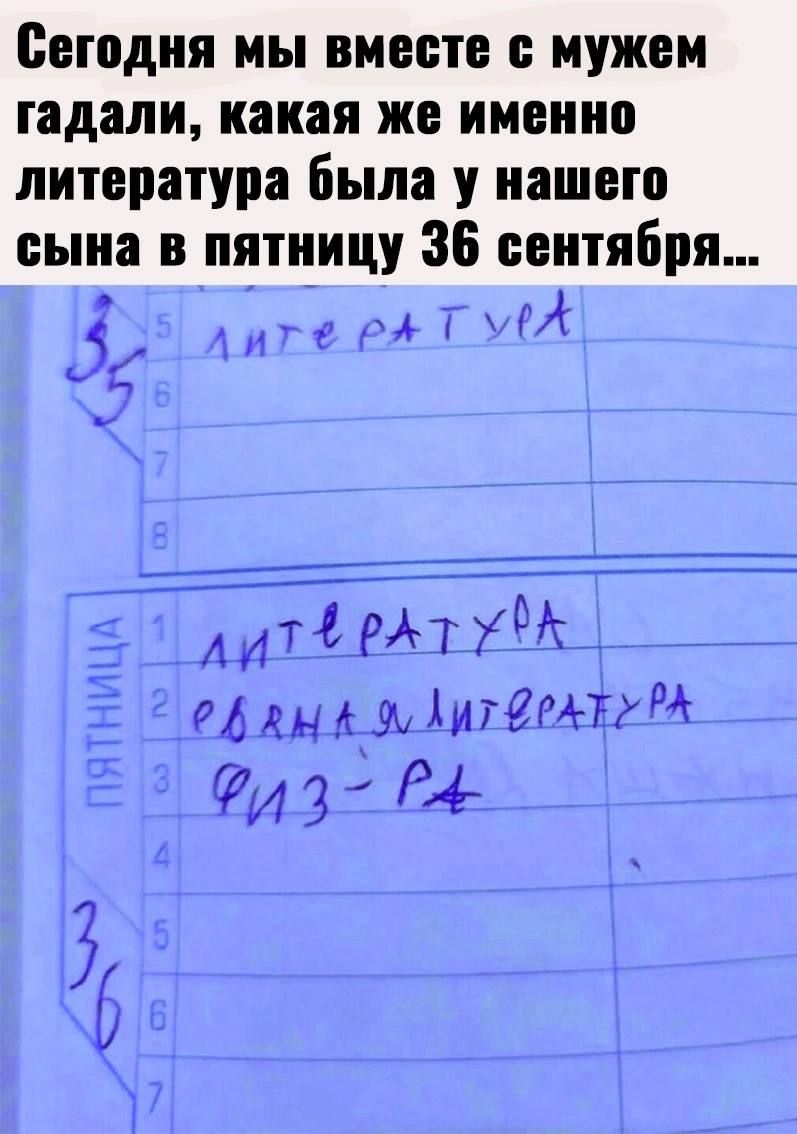 Сегодня мы вместе с мужем
гадали, какая же именно
литература была у нашего
сына в пятницу 36 сентября...
35
5 литература
6
7
8
ПЯТНИЦА
1 литература
2 рваная литература
3 Физ-ра
4
36
5
6
7